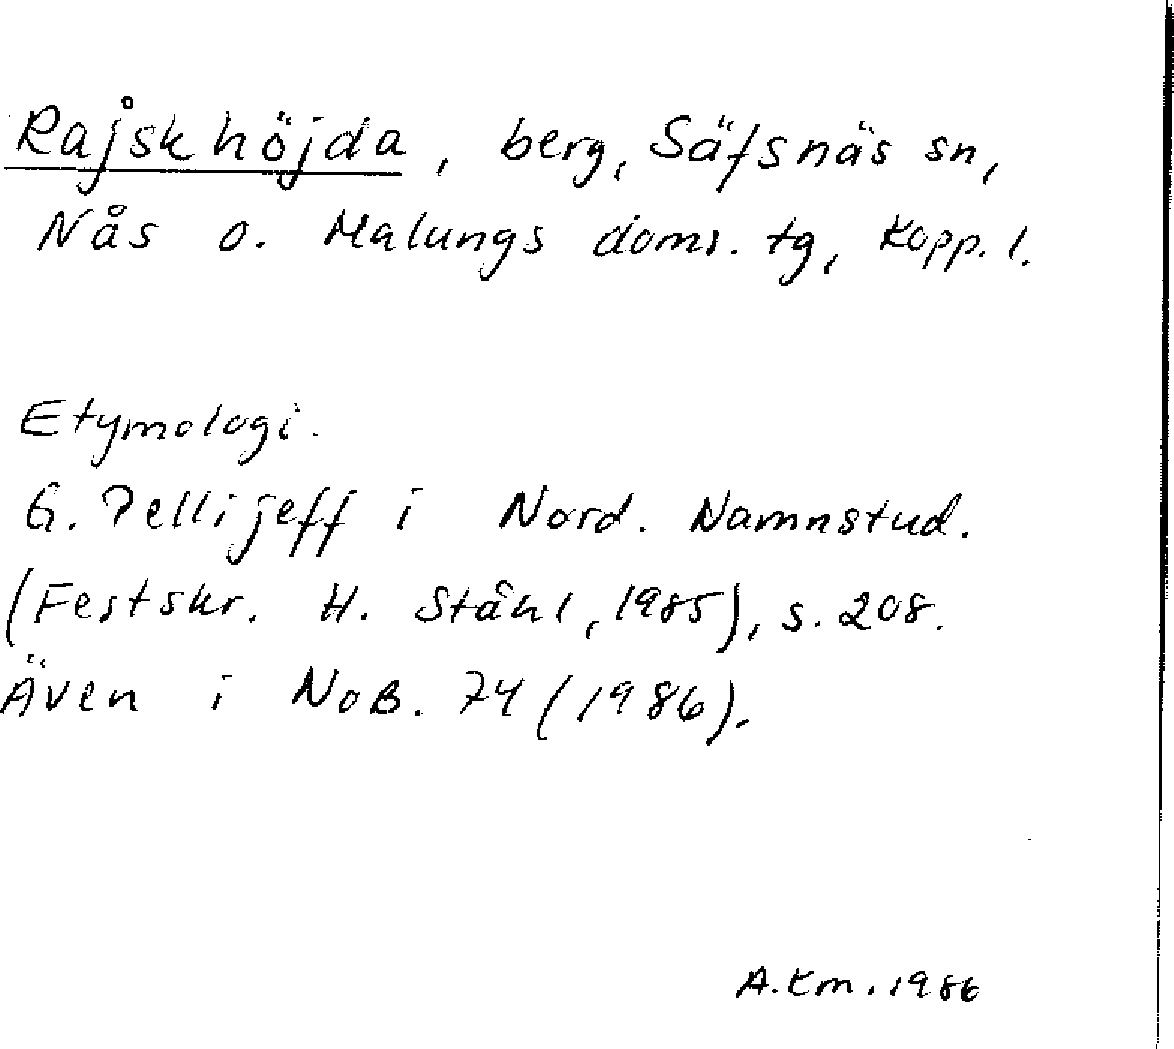 Rajskhöjda, berg, Säfsnäs sn,
Nås o. Malungs doms. tg, Kopp. l.
Etymologi.
G. Pellijeff i Nord. Namnstud.
(Festskr. H. Ståhl, 1985), s. 208.
Även i NoB. 74 (1986).
A.Km. 1986